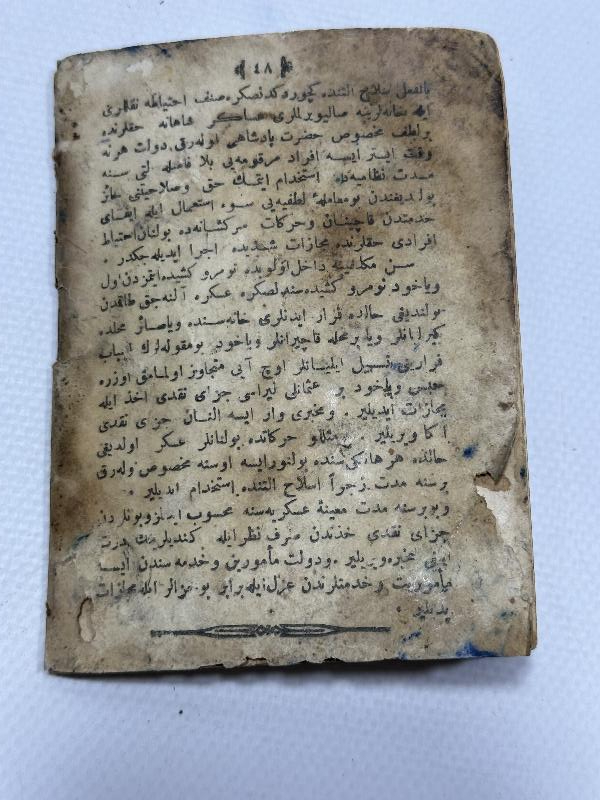 ﴿ ٤٨ ﴾
بالفعل سلاح التنده كچوردكدنصكره صنف احتیاطه نقللری
ایله خانه لرینه صالیویرلملری عساكر شاهانه حقلرنده
بر لطف مخصوص حضرت پادشاهی اوله رق دولت هر نه
وقت ایستر ایسه افراد مرقومه یی بلا فاصله التی سنه
مدت نظامیه ده استخدام ایتمك حق وصلاحیتنی حائز
بولندیغندن بو معاملهٔ لطفیه یی سوء استعمال ایله ایفای
خدمتدن قاچینان وحركات سركشانه ده بولنان احتیاط
افرادی حقلرنده مجازات شدیده اجرا ایدیله جكدر .
سن مكلفیته داخل اولوبده نومرو كشیده ایتمزدن اول
ویاخود نومرو كشیده سندنصكره عسكره آلنه جق طاقمدن
بولندیغی حالده فرار ایدنلری خانه سنده ویا سائر محلده
ویا بر محله قاچیرانلر ویاخود بو مقوله لرك اسباب
فرارینی تسهیل ایلیانلر اوچ آیی متجاوز اولمامق اوزره
حبس ویاخود بر عثمانلی لیراسی جزای نقدی اخذ ایله
مجازات ایدیلیر . ومخبری وار ایسه النان جزای نقدی
اكا ویریلیر . حركاتده بولنانلر عسكر اولدیغی
حالده هر هانكی سنده بولنور ایسه اوسنه مخصوص اوله رق
بر سنه مدت زجراً اسلاح التنده استخدام ایدیلیر .
وبو بر سنه مدت معینهٔ عسكریه سنه محسوب ایدلمز وبونلردن
جزای نقدی اخذندن صرف نظر ایله كندیلرینك
مخبره ویریلیر . ودولت مأمورین وخدمه سندن ایسه
مأموریت وخدمتلرندن عزل ایله برابر بو جزالر ایله مجازات
ایدیلیر .